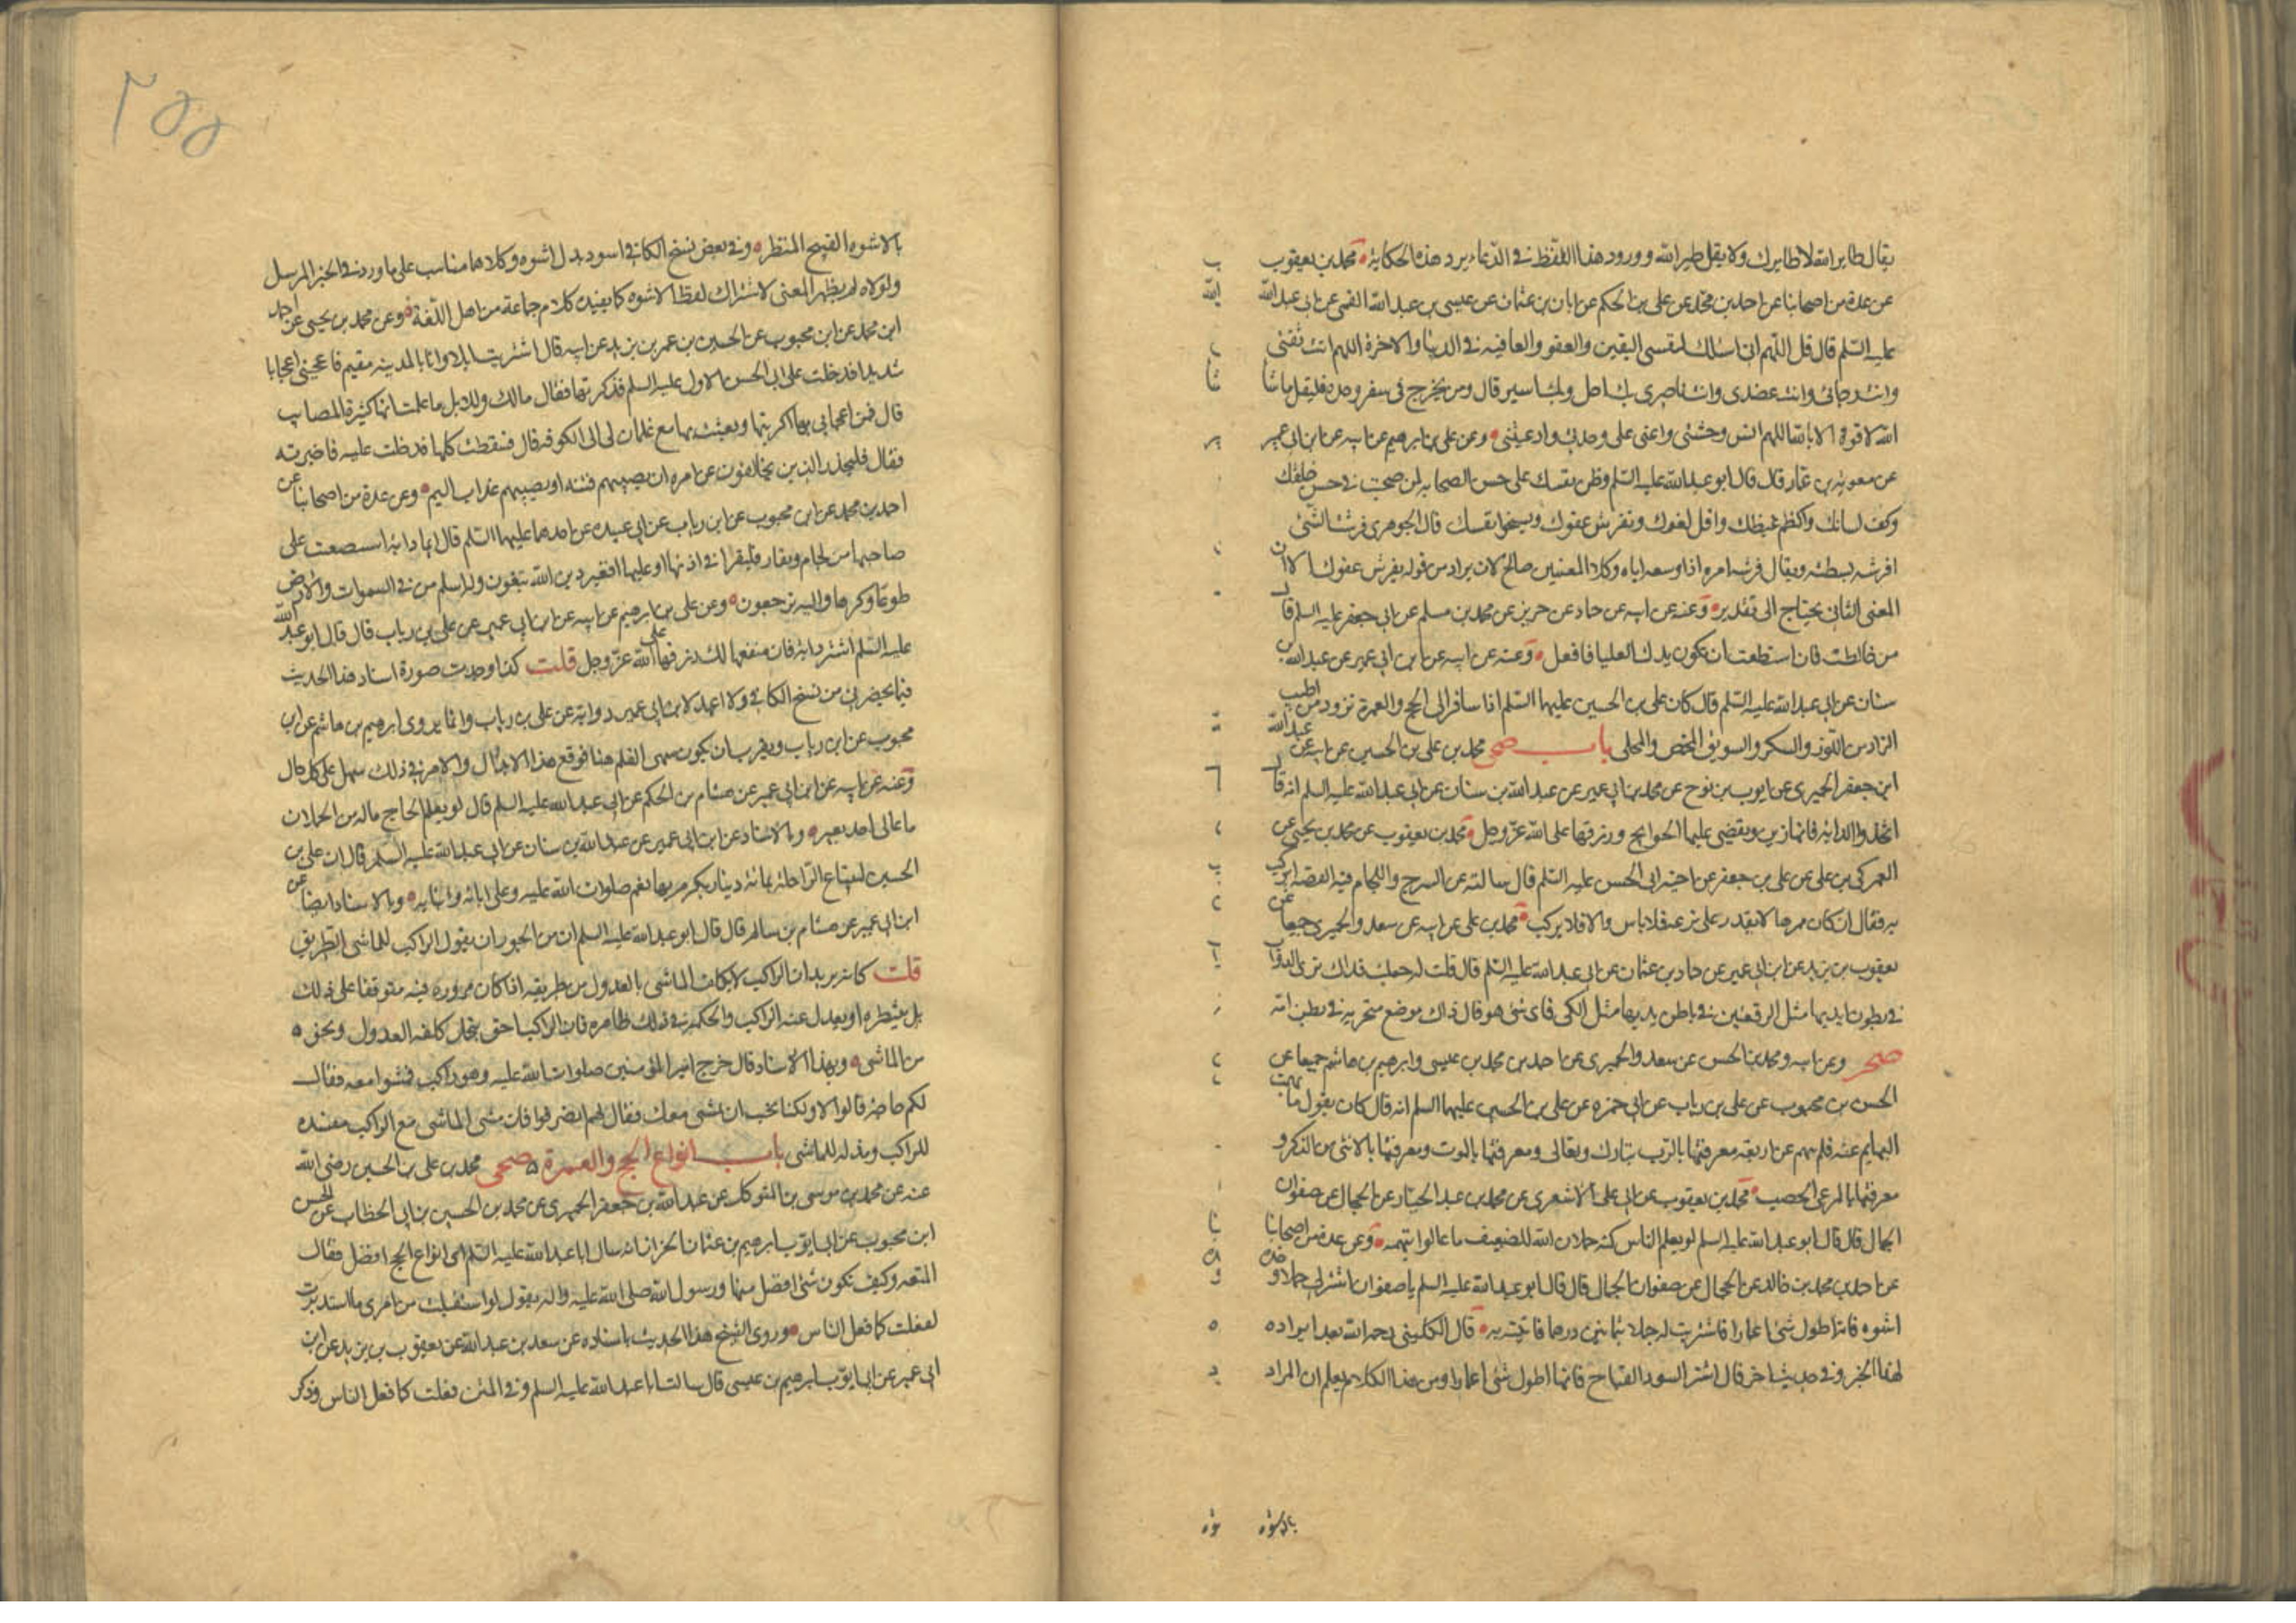 يقال طاير الله لا طايرك ولا يقل طير الله وورود هذا اللفظ في الدعاء يرد هذه الحكاية محمد بن يعقوب
عن عدة من اصحابنا عن احمد بن محمد عن علي بن الحكم عن ابان بن عثمان عن عيسى بن عبد الله القمي عن ابي عبد الله
عليه السلم قال قل اللهم اني اسئلك لنفسي اليقين والعفو والعافيه في الدنيا والاخرة اللهم انت ثقتي
وانت رجائي وانت عضدي وانت ناصري بك احل وبك اسير قال ومن يخرج في سفر وحده فليقل ما شا
الله لا قوة الا بالله اللهم انس وحشتي واعني على وحدتي واد غيبتي وعن علي بن ابرهيم عن ابيه عن ابن ابي عمير
عن معويه بن عمار قال قال ابو عبد الله عليه السلم وطن نفسك على حسن الصحابه لمن صحبت في حسن خلقك
وكف لسانك واكظم غيظك واقل لغوك وتفرش عفوك وتسخوا نفسك قال الجوهري فرشت الشئ
افرشه بسطته ويقال فرشه امره اذا وسعه اياه وكلا المعنيين صالح لان يراد من قوله يفرش عفوك الا ان
المعنى الثاني يحتاج الى تقدير وعنه عن ابيه عن حماد عن حريز عن محمد بن مسلم عن ابي جعفر عليه السلم قال
من خالطت فان استطعت ان تكون يدك العليا فافعل وعنه عن ابيه عن ابن ابي عمير عن عبد الله بن
سنان عن ابي عبد الله عليه السلم قال كان علي بن الحسين عليهما السلم اذا سافر الى الحج والعمرة تزود من اطيب
الزاد من اللوز والسكر والسويق المحمض والمحلى باب صحي محمد بن علي بن الحسين عن ابيه عن عبد الله
ابن جعفر الحميري عن ايوب بن نوح عن محمد بن ابي عمير عن عبد الله بن سنان عن ابي عبد الله عليه السلم انه قال
اتخذوا الدابه فانها زين وتقضى عليها الحوايج ورزقها على الله عز وجل محمد بن يعقوب عن محمد بن يحيى عن
العمركي بن علي عن علي بن جعفر عن اخيه ابي الحسن عليه السلم قال سالته عن السرج واللجام فيه الفضه ايركب
به فقال ان كان مموها لا يقدر على نزعه فلا باس والا فلا يركب محمد بن علي عن ابيه عن سعد والحميري جميعا عن
يعقوب بن يزيد عن ابن ابي عمير عن حماد بن عثمان عن ابي عبد الله عليه السلم قال قلت له جعلت فداك نرى الدواب
في بطون ايديها مثل الرقعتين في باطن يديها مثل الكي فاي شئ هو قال ذاك موضع منخريه في بطن امه
صحر وعن ابيه ومحمد بن الحسن عن سعد والحميري عن احمد بن محمد بن عيسى وابرهيم بن هاشم جميعا عن
الحسن بن محبوب عن علي بن رياب عن ابي حمزه عن علي بن الحسين عليهما السلم انه قال كان يقول ما بهمت
البهايم عنه فلم تبهم عن اربعه معرفتها بالرب تبارك وتعالى ومعرفتها بالموت ومعرفتها بالانثى من الذكر و
معرفتها بالمرعى الخصب محمد بن يعقوب عن ابي علي الاشعري عن محمد بن عبد الجبار عن الحجال عن صفوان
الجمال قال قال ابو عبد الله عليه السلم لو يعلم الناس كنه حملان الله للضعيف ما غالوا ببهيمه وعن عدة من اصحابنا
عن احمد بن محمد بن خالد عن الحجال عن صفوان الجمال قال قال ابو عبد الله عليه السلم يا صفوان اشتر لي جملا وخذه
اشوه فانها اطول شئ اعمارا فاشتريت له جملا بثمانين درهما فاتيته به قال الكليني رحمه الله بعد ايراده
لهذا الخبر وفي حديث اخر قال اشتر السود القباح فانها اطول شئ اعمارا ومن هذا الكلام يعلم ان المراد
بالاشوه
٢٥٥
بالاشوه القبيح المنظر وفي بعض نسخ الكافي اسود بدل اشوه وكلاهما مناسب على ما ورد في الخبر المرسل
ولولاه لم يظهر المعنى لاشتراك لفظ الاشوه كما يفيده كلام جماعة من اهل اللغة وعن محمد بن يحيى عن احمد
ابن محمد عن ابن محبوب عن الحسين بن عمر بن يزيد عن ابيه قال اشتريت ابلا وانا بالمدينه مقيم فاعجبني اعجابا
شديدا فدخلت على ابي الحسن الاول عليه السلم فذكرتها فقال مالك وللابل ما علمت انها كثيرة المصايب
قال فمن اعجابي بها اكريتها وبعثت بها مع غلمان لي الى الكوفه قال فسقطت كلها فدخلت عليه فاخبرته
فقال فليحذر الذين يخالفون عن امره ان تصيبهم فتنه او يصيبهم عذاب اليم وعن عدة من اصحابنا عن
احمد بن محمد عن ابن محبوب عن ابن رياب عن ابي عبيده عن احدهما عليهما السلم قال ايما دابه استصعبت على
صاحبها من لجام ونفار فليقرا في اذنها او عليها افغير دين الله تبغون وله اسلم من في السموات والارض
طوعا وكرها واليه ترجعون وعن علي بن ابرهيم عن ابيه عن ابن ابي عمير عن علي بن رياب قال قال ابو عبد الله
عليه السلم اشتر دابه فان منفعتها لك ورزقها على الله عز وجل قلت كذا وجدت صورة اسناد هذا الحديث
فيما يحضرني من نسخ الكافي ولا اعهد لابن ابي عمير رواية عن علي بن رياب وانما يروي ابرهيم بن هاشم عن ابن
محبوب عن ابن رياب ويقرب ان يكون سهى القلم هنا فوقع هذا الابدال والامر في ذلك سهل على كل حال
وعنه عن ابيه عن ابن ابي عمير عن هشام بن الحكم عن ابي عبد الله عليه السلم قال لو يعلم الحاج ماله من الحملان
ما غالى احد ببعير وبالاسناد عن ابن ابي عمير عن عبد الله بن سنان عن ابي عبد الله عليه السلم قال ان علي بن
الحسين لبتاع الراحلة بمائة دينار يكرم بها نفسه صلوات الله عليه وعلى ابائه وابنائه وبالاسناد ايضا عن
ابن ابي عمير عن هشام بن سالم قال قال ابو عبد الله عليه السلم ان من الجور ان يقول الراكب للماشي الطريق
قلت كانه يريد ان الراكب لا يكلف الماشي بالعدول من طريقه اذا كان مروره فيه متوقفا على ذلك
بل ينتظره او يعدل عنه الراكب والحكمة في ذلك ظاهره فان الراكب احق بتحمل كلفه العدول ونحوه
من الماشي وبهذا الاسناد قال خرج امير المؤمنين صلوات الله عليه وهو راكب فمشوا معه فقال
لكم حاجة قالوا لا ولكنا نحب ان نمشي معك فقال لهم انصرفوا فان مشى الماشي مع الراكب مفسده
للراكب ومذله للماشي باب انواع الحج والعمرة صحي محمد بن علي بن الحسين رضي الله
عنه عن محمد بن موسى بن المتوكل عن عبد الله بن جعفر الحميري عن محمد بن الحسين بن ابي الخطاب عن الحسن
ابن محبوب عن ابي ايوب ابرهيم بن عثمان الخزاز انه سال ابا عبد الله عليه السلم اي انواع الحج افضل فقال
المتعه وكيف تكون شئ افضل منها ورسول الله صلى الله عليه واله يقول لو استقبلت من امري ما استدبرت
لفعلت كما فعل الناس وروى الشيخ هذا الحديث باسناده عن سعد بن عبد الله عن يعقوب بن يزيد عن ابن
ابي عمير عن ابي ايوب ابرهيم بن عيسى قال سالت ابا عبد الله عليه السلم وفي المتن فعلت كما فعل الناس وذكر